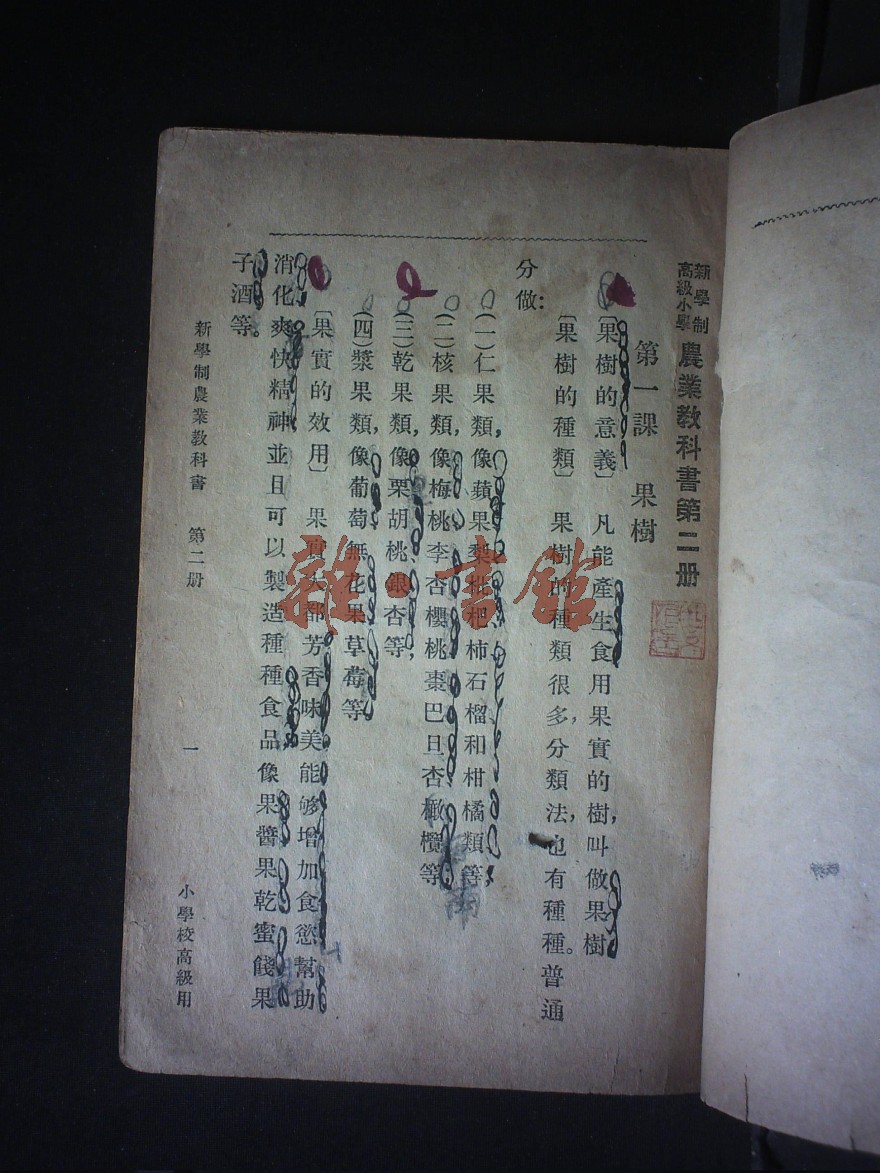 新學制
高級小學
農業教科書第二册
第一課　果樹
〔果樹的意義〕　凡能產生食用果實的樹，叫做果樹
〔果樹的種類〕　果樹的種類很多，分類法，也有種種。普通
分做：
（一）仁果類，像蘋果梨枇杷柿石榴和柑橘類等，
（二）核果類，像梅桃李杏櫻桃棗巴旦杏橄欖等，
（三）乾果類，像栗胡桃銀杏等，
（四）漿果類，像葡萄無花果草莓等，
〔果實的效用〕　果實大都芳香味美能够增加食慾幫助
消化爽快精神並且可以製造種種食品像果醬果乾蜜餞果
子酒等。
新學制農業教科書　第二册
一
小學校高級用
雜·書館